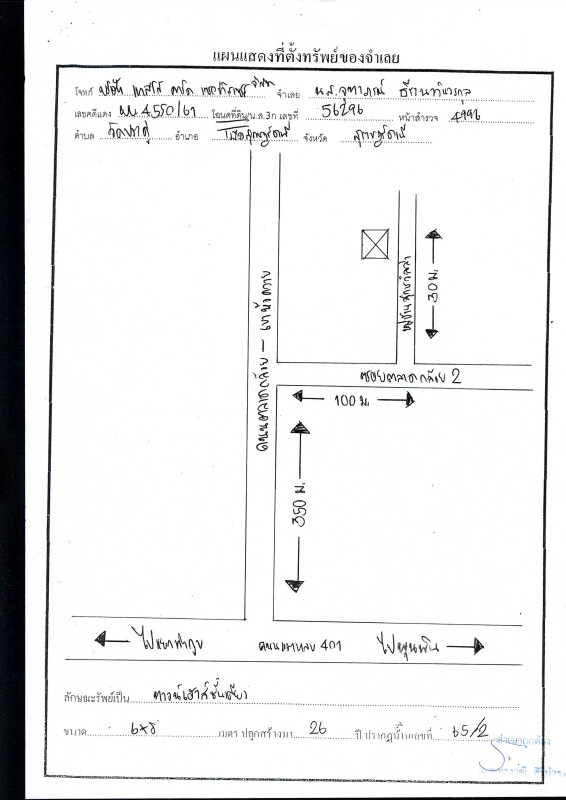 แผนแสดงที่ตั้งทรัพย์ของจำเลย
โจทก์ บริษัท เทสโก้ คาร์ด เซอร์วิสเซส จำกัด จำเลย น.ส.จุฑาภรณ์
เลขคดีแดง ผบ.4550/61 โฉนดที่ดิน/น.ส.3ก เลขที่ 56296 หน้าสำรวจ 4996
ตำบล วัดประดู่ อำเภอ เมืองสุราษฎร์ธานี จังหวัด สุราษฎร์ธานี
30 ม.
ถนนตลาดกล้วย - เขาหัวควาย
ซอยตลาดกล้วย 2
100 ม.
350 ม.
ไปแยกท่ากูบ ถนนทางหลวง 401 ไปพุนพิน
ลักษณะทรัพย์เป็น ทาวน์เฮ้าส์ชั้นเดียว
ขนาด 6x8 เมตร ปลูกสร้างมา 26 ปี ปรากฏบ้านเลขที่ 65/2
สำเนาถูกต้อง